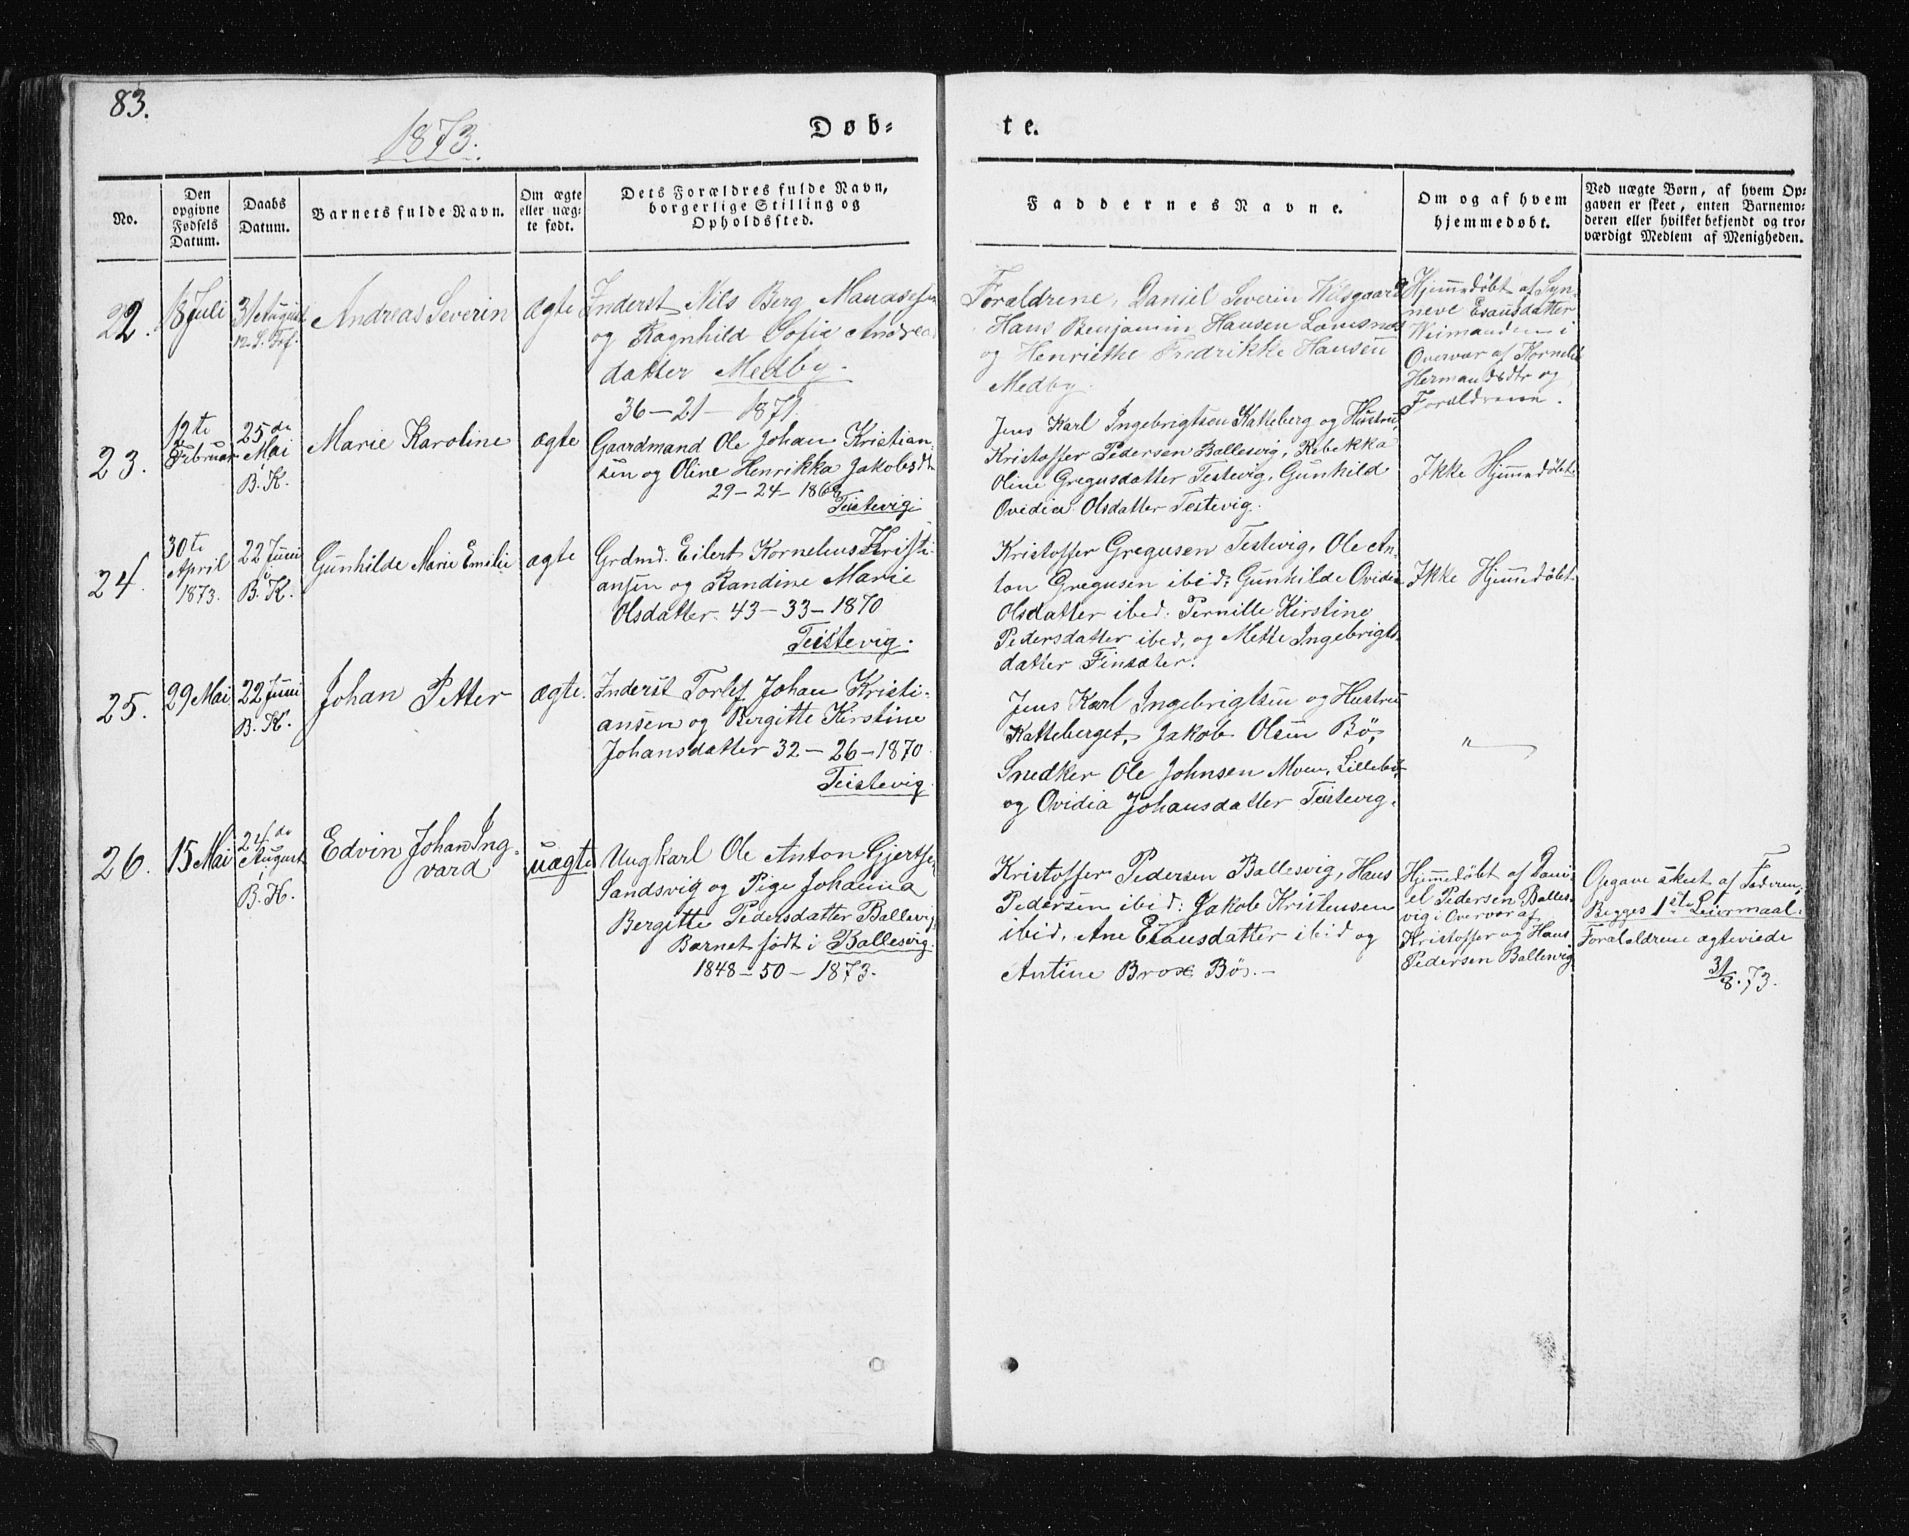 83.
1873.
Døb-
te.
No.
Den opgivne Fødsels Datum.
Daabs Datum.
Barnets fulde Navn.
Om ægte eller uæg-te født.
Dets Forældres fulde Navn, borgerlige Stilling og Opholdssted.
Faddernes Navne.
Om og af hvem hjemmedøbt.
Ved uægte Børn, af hvem Op-gaven er skeet, enten Barnemo-deren eller hvilket bekjendt og tro-værdigt Medlem af Menigheden.
22.
18 Juli
31 August
12. S. Tref.
Andreas Severin
ægte
Inderst Nils Berg
og Ragnhild Sofia Andrea
datter Medby.
36-21-1871.
Forældrene, Daniel Severin
Hans Benjamin Hansen
og Henriethe Fredrikke Hansen
Medby.
Hjemmedøbt af Syn-
neve Esausdatter
Weimanden i
Overvær af Kornelia
Hermandsdtr og
Forældrene.
23.
12te
Februar
25de
Mai
i
B. K.
Marie Karoline
ægte
Gaardmand Ole Johan Kristian-
sen og Oline Henrikka Jakobsdtr
29-24-1868
Teistevig
Jens Karl Ingebrigtsen Katteberg og Hustru,
Kristoffer Pedersen Ballesvig, Rebekka
Oline Gregusdatter Testevig, Gunhild
Ovidia Olsdatter Testevig.
Ikke Hjemmedøbt
24.
30te
April
1873.
22 Juni
i
B. K.
Gunhilde Marie Emilie
ægte
Grdmd. Eilert Kornelius Kristi-
ansen og Randine Marie
Olsdatter 43-33-1870
Teistevig.
Kristoffer Gregusen Testevig, Ole An-
ton Gregusen ibid: Gunhilde Ovidia
Olsdatter ibid: Pernille Kirstine
Pedersdatter ibid, og Mette Ingebrigts-
datter Finsæter.
Ikke Hjemmedøbt
25.
29 Mai
22 Juni
B. K.
Johan Petter
ægte.
Inderst Torlef Johan Kristi-
ansen og Bergitte Kirstine
Johansdatter 32-26-1870.
Teistevig
Jens Karl Ingebrigtsen og Hustru
Katteberget, Jakob Olsen Bø,
Snedker Ole Johnsen Moen, Lillebø
og Ovidia Johansdatter Teistevig.
"
26.
15 Mai
24de
August
i
B. K.
Edvin Johan Ing-
vard
uægte
Ungkarl Ole Anton Gjertsen
Sandsvig og Pige Johanna
Bergitte Pedersdatter Ballesvig
Barnet født i Ballesvig
1848-50-1873.
Kristoffer Pedersen Ballesvig, Hans
Pedersen ibid: Jakob Kristensen
ibid, Ane Esausdatter ibid og
Antine Brox Bø.-
Hjemmedøbt af Dani-
el Pedersen Balles-
vig i Overvær af
Kristoffer og Hans
Pedersen Ballesvig
Opgave skeet af Faderen.
Begges 1ste Leiermaal.
Forældrene ægteviede
31/8.73.